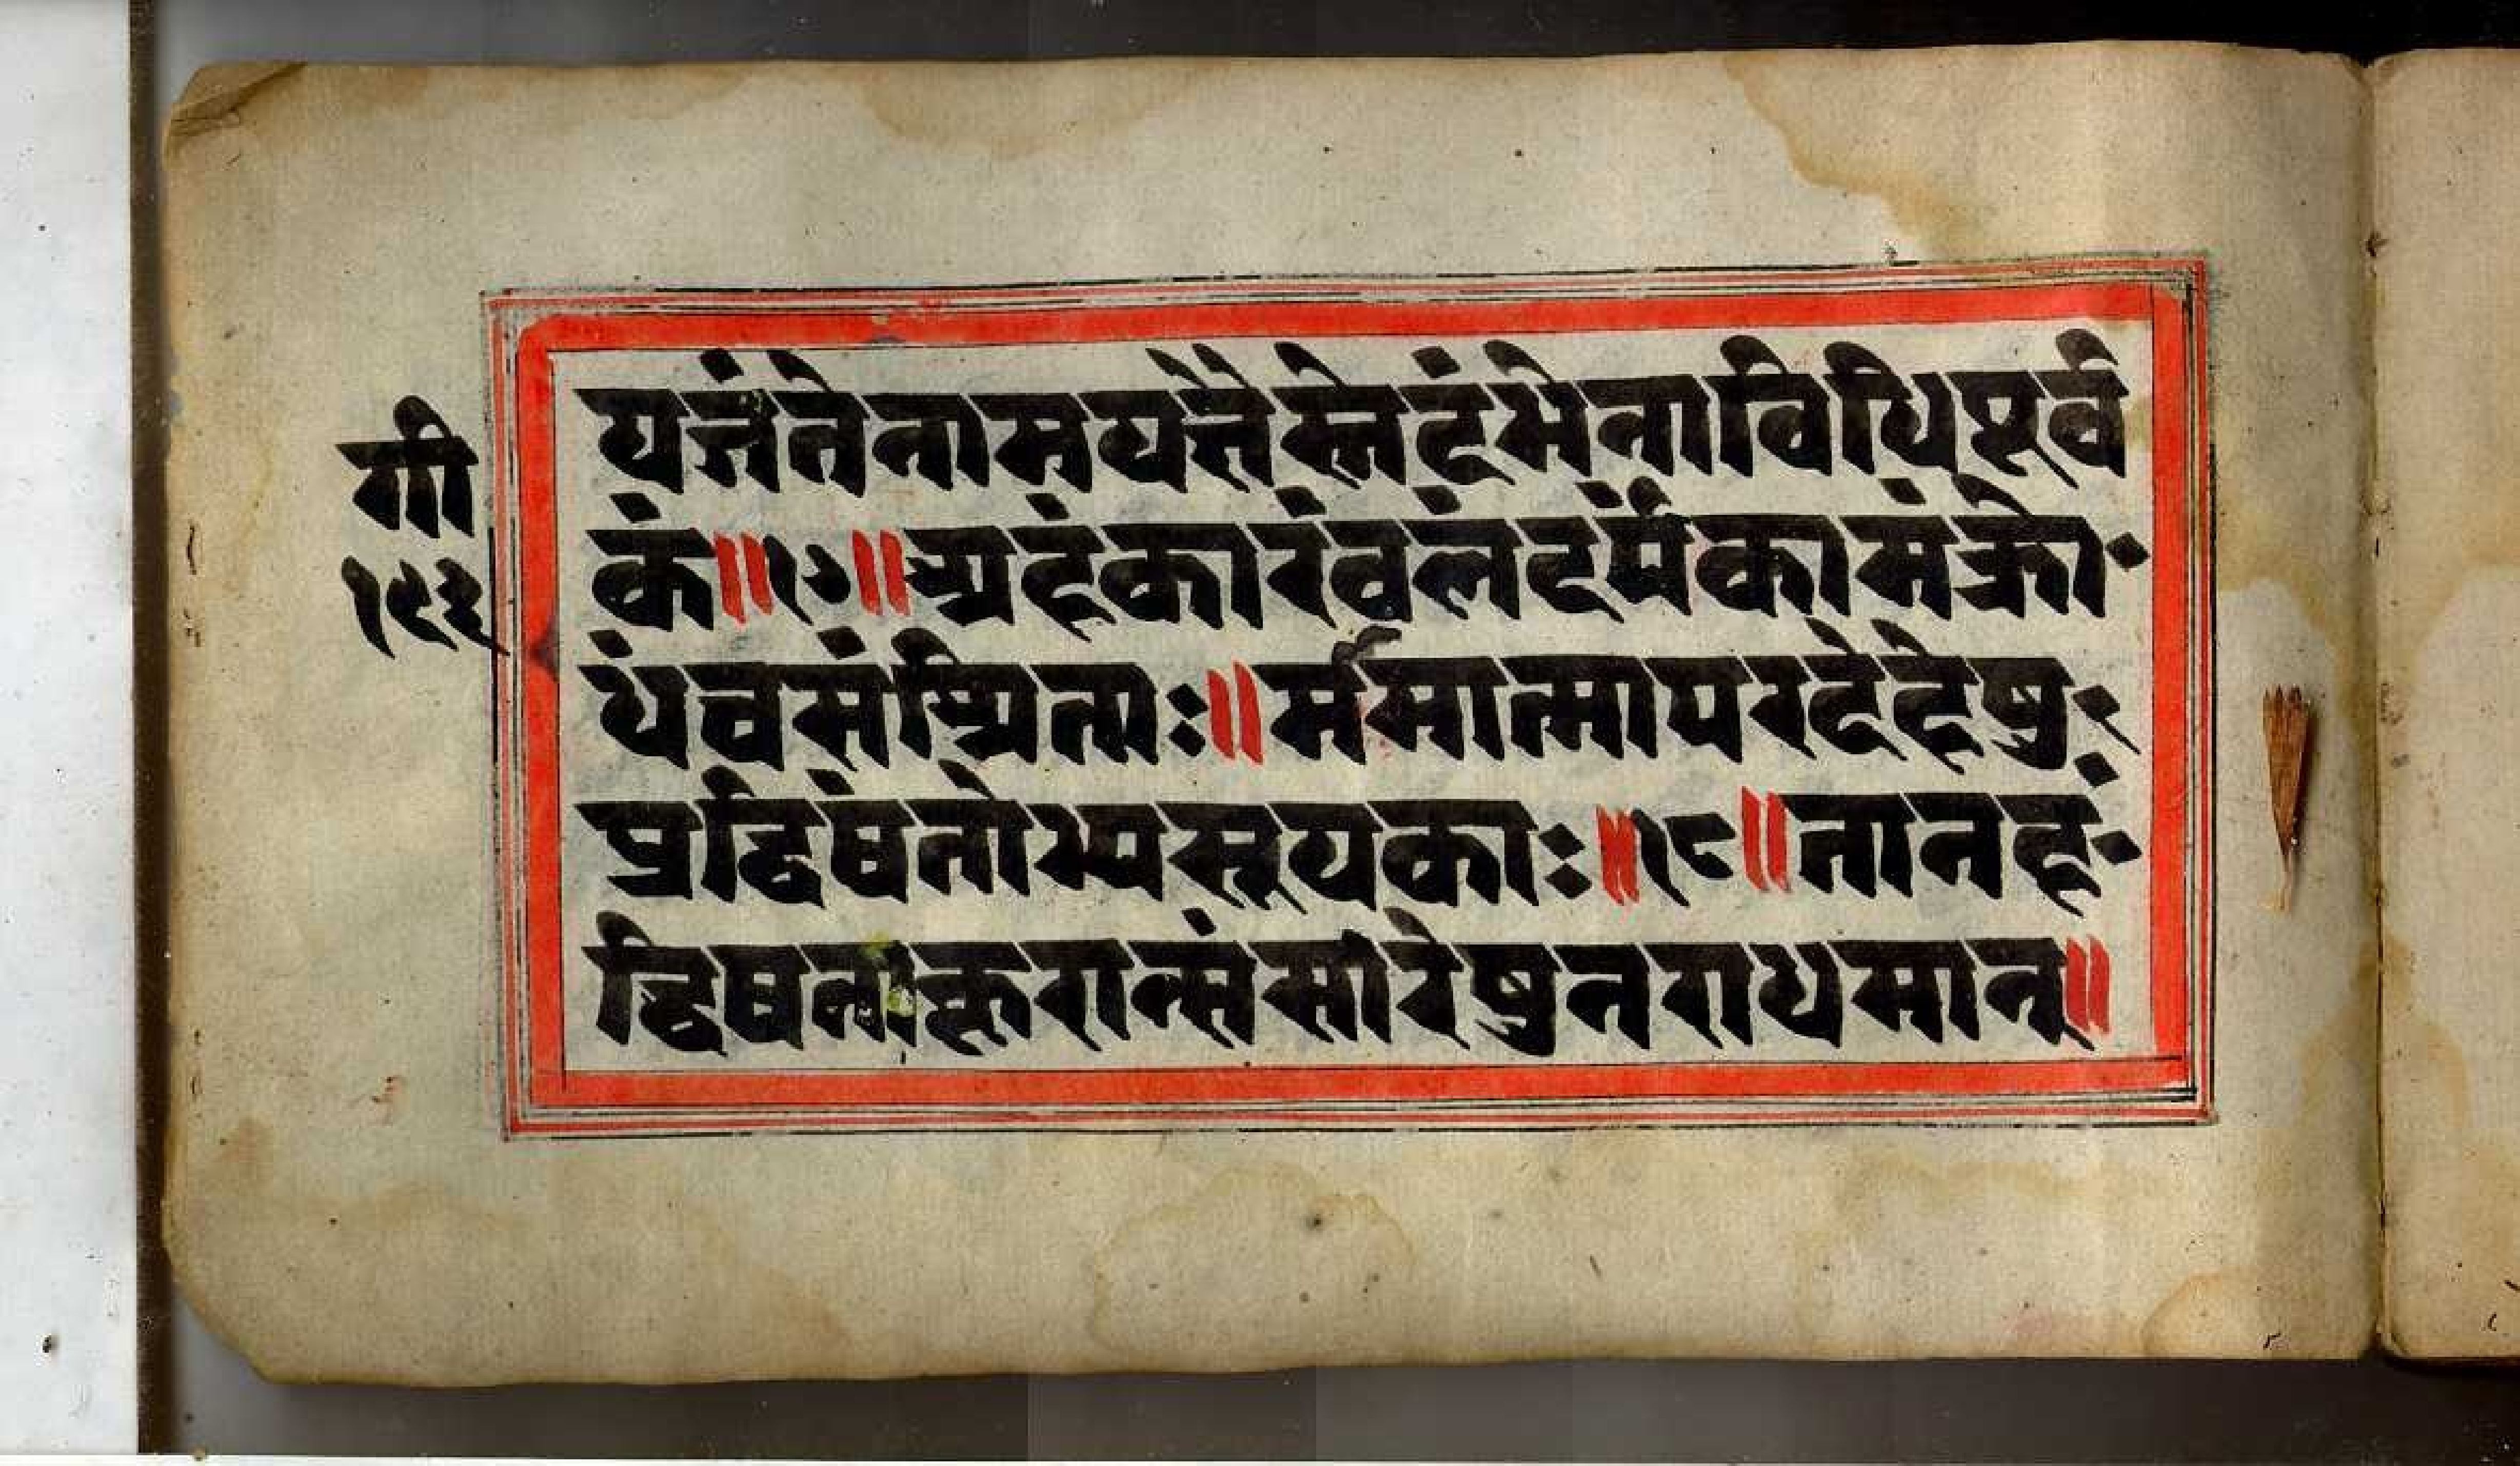 गी
१९३
यजंतेनामयज्ञैस्तेदंभेनाविधिपूर्व
कं॥१७॥अहंकारंबलंदर्पंकामंक्रो
धंचसंश्रिताः॥मामात्मापरदेहेषु
प्रद्विषंतोभ्यसूयकाः॥१८॥तानहं
द्विषतःक्रूरान्संसारेषुनराधमान्॥